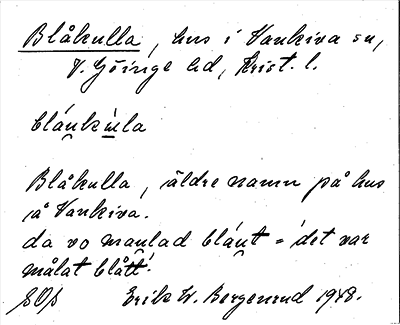 Blåkulla, hus i Vankiva sn,
V. Göinge hd, Krist. l.
bláu̯kùla
Blåkulla, äldre namn på hus
å Vankiva.
da vo mau̯lad bláu̯t = ’det var
målat blått’.
Erik W. Bergenrud 1948.